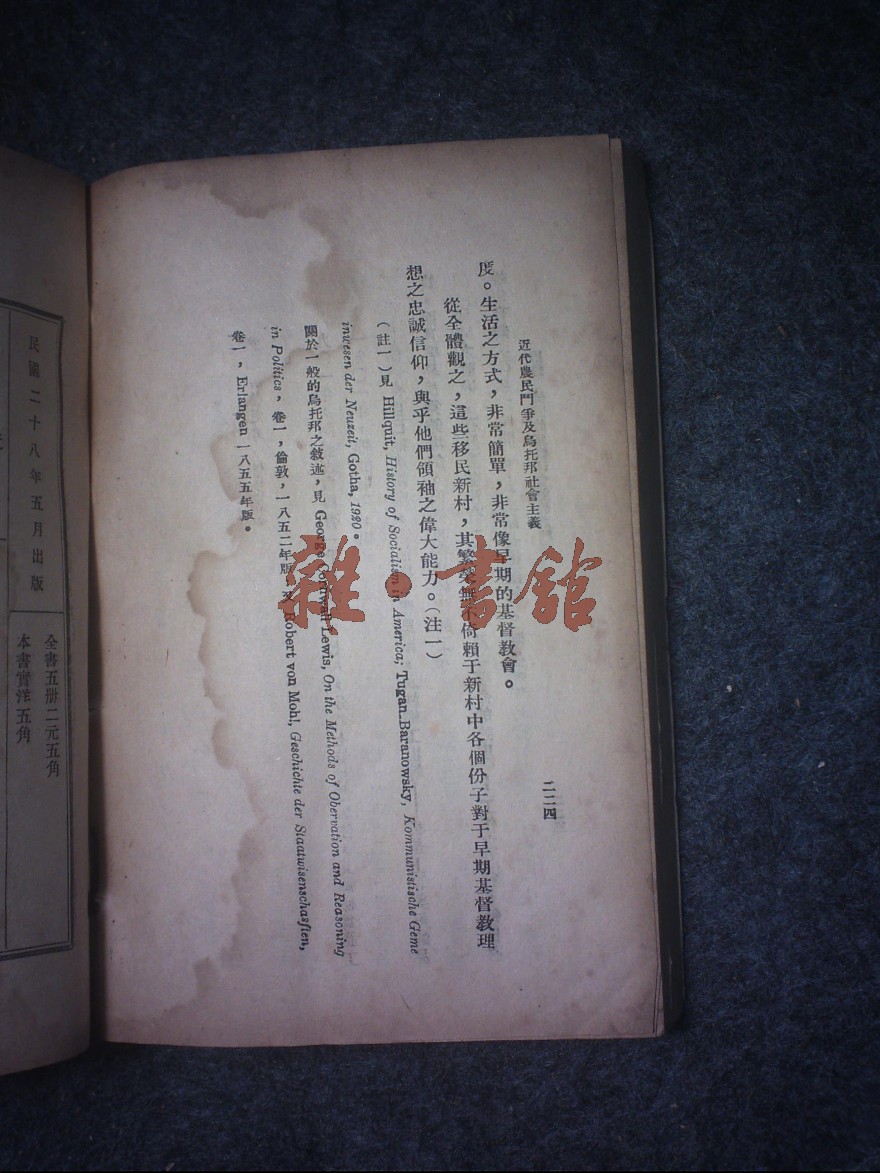 近代農民鬥爭及烏托邦社會主義
二二四
度。生活之方式，非常簡單，非常像早期的基督教會。
從全體觀之，這些移民新村，其繁榮無不倚賴于新村中各個份子對于早期基督教理
想之忠誠信仰，與乎他們領袖之偉大能力。（注一）
（註一）見 Hillquit, History of Socialism in America; Tugan-Baranowsky, Kommunistische Geme
inwesen der Neuzeit, Gotha, 1920。
關於一般的烏托邦之敘述，見 George Cornwall Lewis, On the Methods of Obervation and Reasoning
in Politics，卷一，倫敦，一八五二年版，及 Robert von Mohl, Geschichte der Staatwisenschasften,
卷一，Erlangen 一八五五年版。
民國二十八年五月出版
全書五册二元五角
本書實洋五角
雜·書館